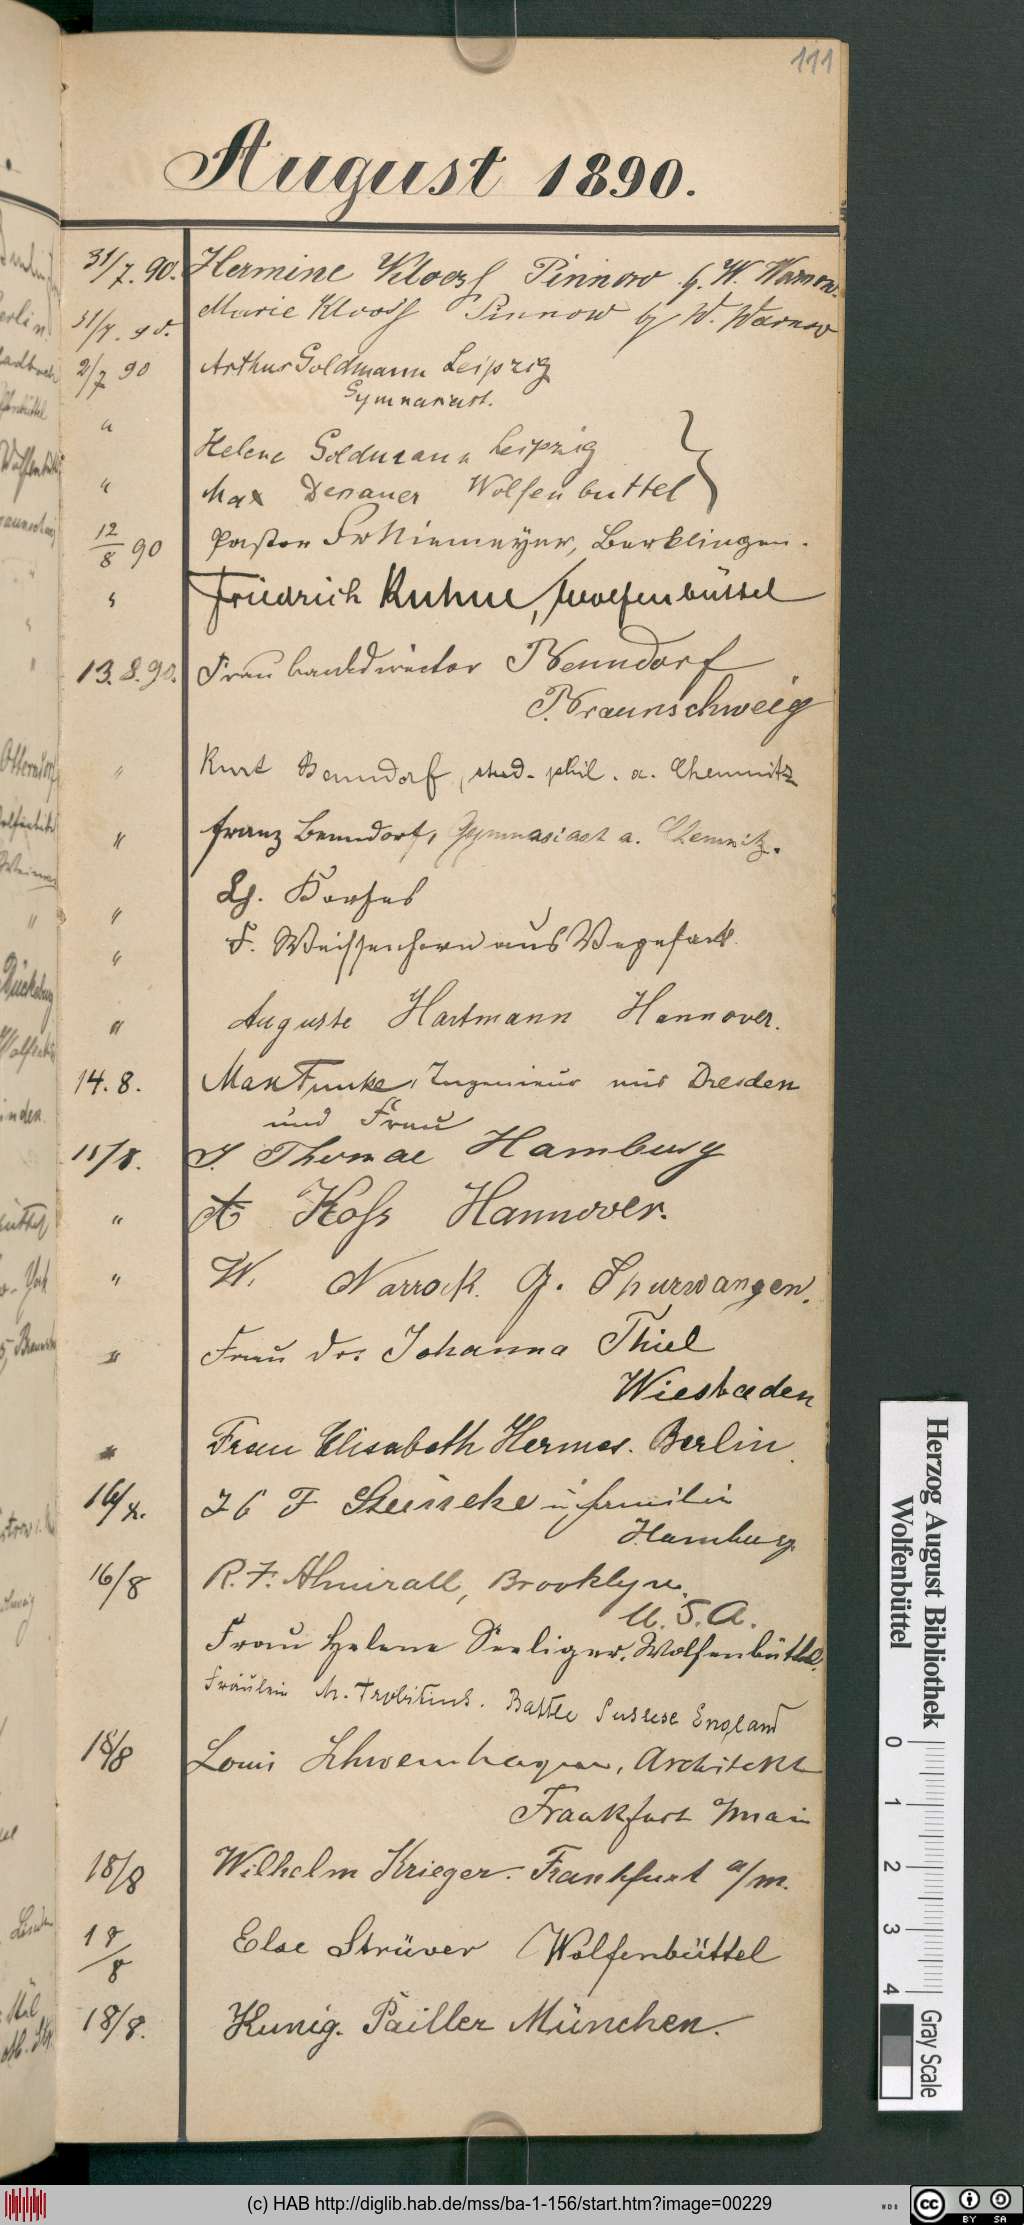 111
August 1890.
31/7. 90. Hermine Klooss Pinnow b. W. Warnow.
31/7. 90. Marie Klooss Pinnow b/ W. Warnow
2/7 90 Arthur Goldmann Leipzig
Gymnasiast.
" Helene Goldmann Leipzig
" Max Dessauer Wolfenbuttel
12/8 90 Pastor Fr Niemeyer, Berklingen.
" Friedrich Kuhne, Wolfenbüttel
13. 8. 90. Frau Bankdirector Benndorf
Braunschweig
" Kurt Benndorf, stud. phil. a. Chemnitz
" Franz Benndorf, Gymnasiast a. Chemnitz.
"
" F. Weissenhorn aus Vegesack.
" Auguste Hartmann Hannover.
14. 8. Max Funke, Ingenieur aus Dresden
und Frau
15/8. J. Thomae Hamburg
" A Koss Hannover.
" W.
" Frau Dr. Johanna Thiel
Wiesbaden
" Frau Elisabeth Hermes. Berlin.
16/8. F u. Familie
Hamburg
16/8 R. F. Almirall, Brooklyn.
U. S. A.
Frau Helene Seeliger. Wolfenbüttel.
Fräulein M. Battle Sussex England
18/8 Louis Schwemhagen, Architekt
Frankfurt a/main
18/8 Wilhelm Krieger. Frankfurt a/m.
18/8 Else Strüver Wolfenbüttel
18/8. Kunig. Pailler München.
Herzog August Bibliothek
Wolfenbüttel
0 1 2 3 4
Gray Scale
(c) HAB http://diglib.hab.de/mss/ba-1-156/start.htm?image=00229
WDB
cc BY SA